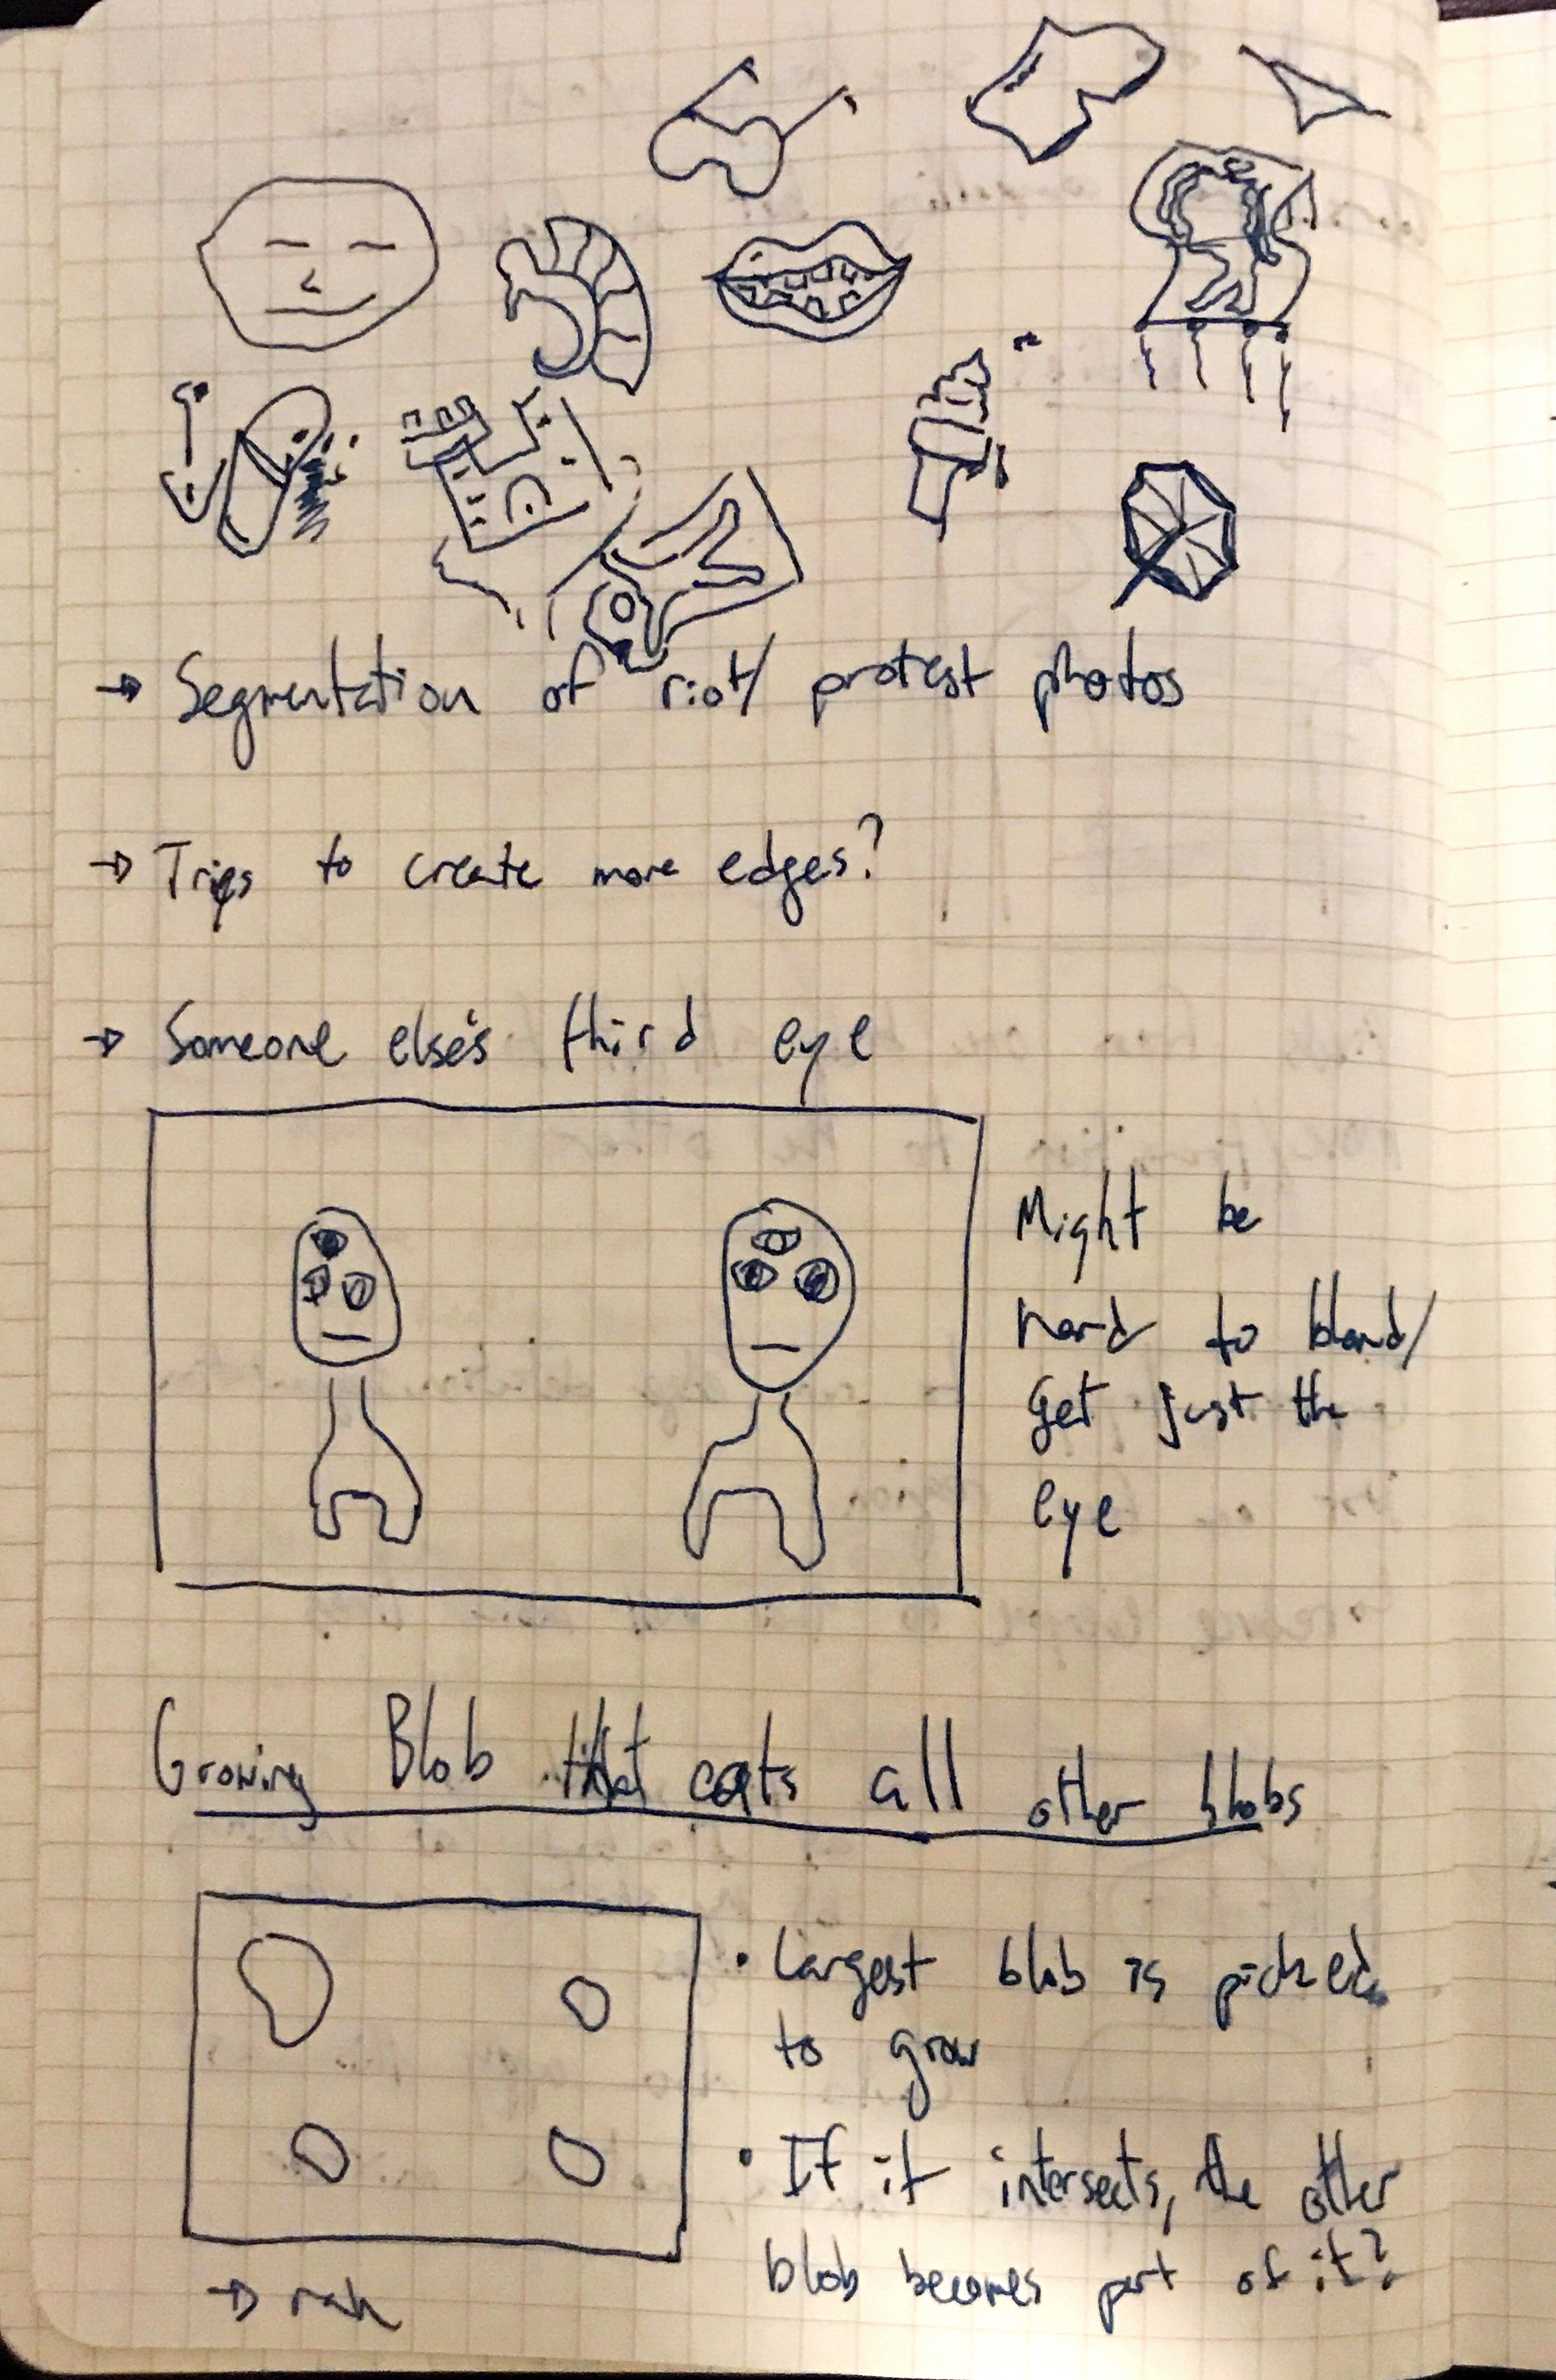 → Segmentation of riot/ protest photos
→ Tries to create more edges?
→ Someone else's third eye
Might be
hard to blend/
get just the
eye
Growing Blob that eats all other blobs
• Largest blob is picked
to grow
• If it intersects, the other
blob becomes part of it?
→